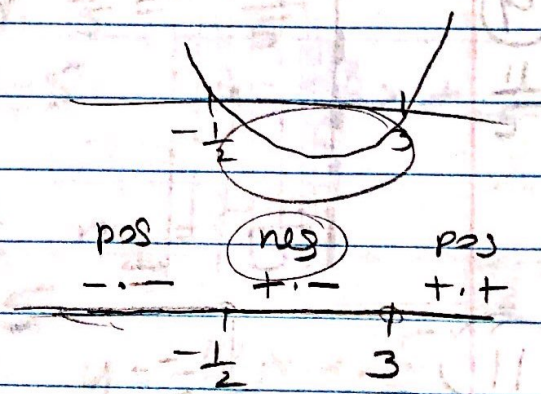 -1/2 3
pos neg pos
- · - + · - + · +
-1/2 3